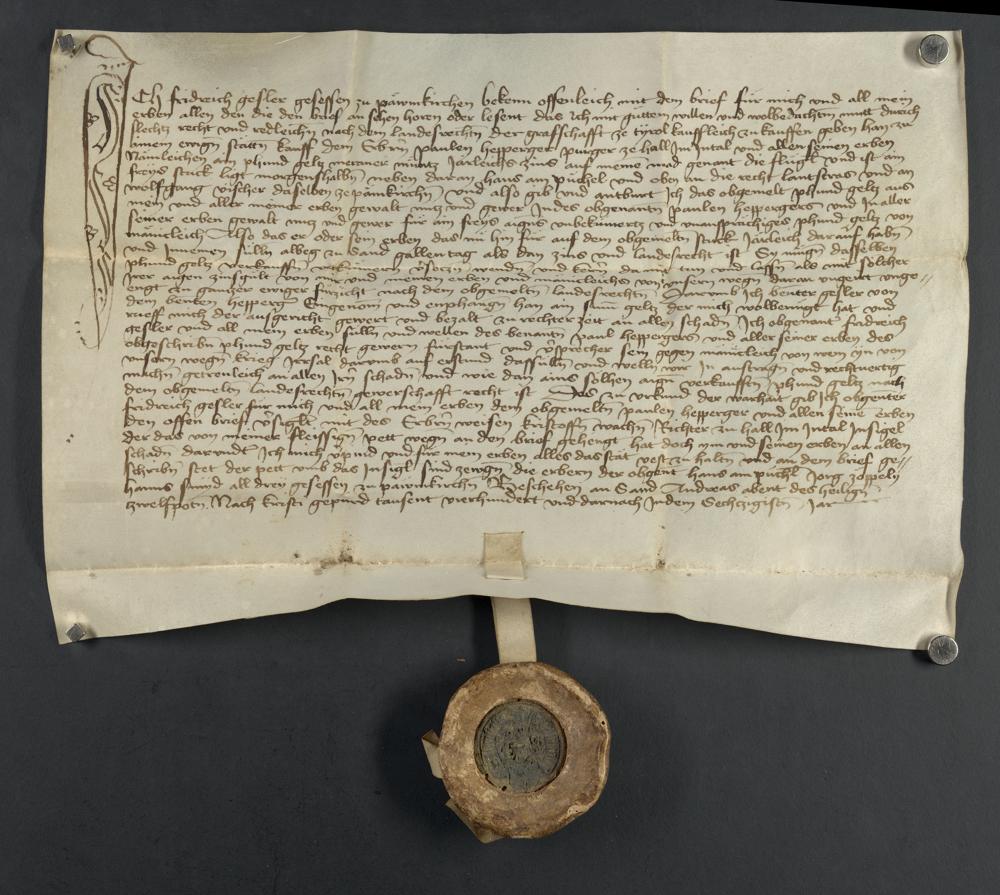 Ich fridreich gesler gesessen zu pawmkirchen bekenn offenleich mit dem brief für mich vnd all mein
erben allen den die den brief an sehen horen oder lesent das Ich mit guttem willen vnd wolbedachtm mutt durch
slechtz recht vnd redleichn nach dem landesrechtn der grafschafft ze tyrol kauffleich zu kauffen geben han zu
ainem ewign stäten kauff dem Erbrn paulen hepperger purger ze hall Im Intal vnd allen seinen erben
Nämleichen ain phund geltz meraner müntz Järleichs zins auf meine mad genant die flügk vnd ist ain
freys stuck ligt morgenshalbn neben daran hans am püchel vnd oben an die recht lantstras vnd an
wolfgang vischer daselben ze pämkirchn vnd also gib vnd antburt Ich das obgemelt phund geltz aus
mein vnd aller meiner erben gewalt nutz vnd gewer Indes obgenantn paulen heppergers vnd In aller
seiner erben gewalt nutz vnd gewer für ain freys aigns vnbekümertz vnd vnansprächigs phund geltz von
mänicleich Also das er oder sein erben das nu hin für auf dem obgemeltn stuck Järleich darauf habn
vnd Innemen sülln albeg zu Sand gallentag als dan zins vnd landesrecht ist Sy mügn dasselben
phund geltz verkauffn vekümern vsetzn wendn vnd kern da mit tun vnd lassn als mit sölcher
irer aigen zinsgült von mir vnd meinen erben vnd mäniclechs von vnsern wegn daran vngeirt vnge//
engt zu gantzer ewiger fürzicht nach dem obgemeltn landesrechtn Darumb Ich benter gesler von
dem benten hepperg Eingenom vnd enphangn han ain sum geltz der mich wolbenügt hat vnd
rueff mich der ausgericht gewert vnd bezalt zu rechter zeit an allen schadn Ich obgenant fridreich
gesler vnd all mein erben sülln vnd wellen des benantn paul heppergers vnd aller seiner erben des
obgeschribn phund geltz recht gewern fürstant vnd vsprecher sein gegen mänicleich von wem yn von
vnsern wegn krieg Irrsal darumb auf erstund das sülln vnd welln wir In austragn vnd rechtuertig
machn getreuleich an allen Irn schadn vnd wie dan ains solhen aign verkaufftn phund geltz nach
dem obgemeltn landesrechtn gewerschafft recht ist Des zu vrkund der warhait gib Ich obgenter
fridreich gesler für mich vnd all mein erben dem obgemeltn paulen hepperger und allen seine erben
den offen brief vsiglt mit des Erbrn weisen kristoffn wachn Richter zu hall Im Intal Insigel
der das von meiner fleissign pett wegn an den brief gehengt hat doch ym vnd seinen erben an allen
schadn darundt Ich mich vpind vnd für mein erben alles das stät vest zu haltn vnd an dem brief ge//
schribn stet der pett vmb das Insigl sind zewgn die erbern der obgent hans am püchl Jorg zoppeln
hanns sümd all drey gesessen zu pawmkirchn Beschehen an Sand Andreas abent des heilign
zwelfpotn Nach kristi gepurd tausent vierhundert vnd darnach Indem Sechtzigistn Jar